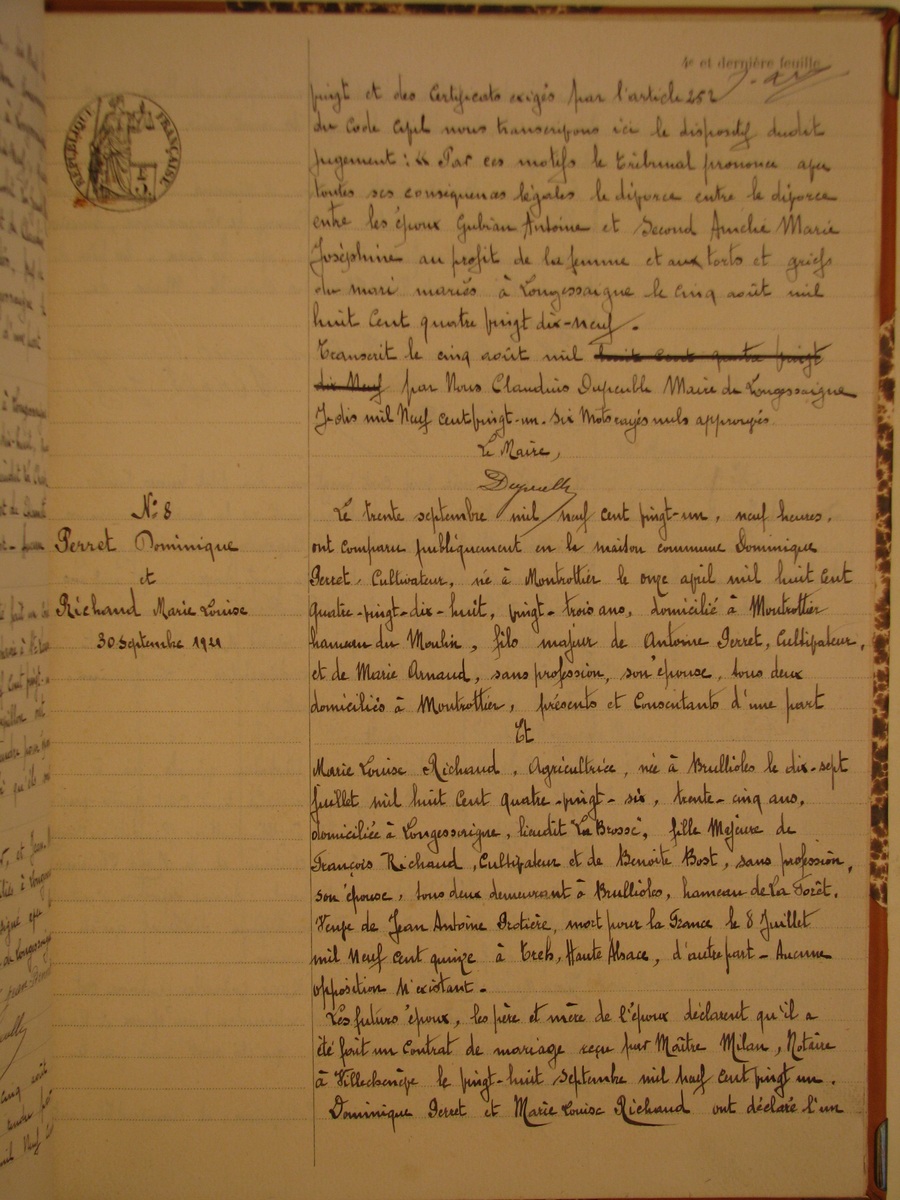 4e et dernière feuille
RÉPUBLIQUE FRANÇAISE
vingt et des Certificats exigés par l'article 252
du Code Civil nous transcrivons ici le dispositif dudit
jugement : « Par ces motifs le tribunal prononce avec
toutes ses conséquences légales le divorce entre le divorce
entre les époux Gubian Antoine et Second Amélie Marie
Joséphine au profit de la femme et aux torts et griefs
du mari mariés à Longessaigne le cinq août mil
huit Cent quatre vingt dix-neuf.
Transcrit le cinq août mil huit cent quatre vingt
dix Neuf par Nous Claudius Dupeuble Maire de Longessaigne
Je dis mil Neuf cent vingt-un. Six Mots rayés nuls approuvés.
Le Maire,
Dupeuble
N° 8
Perret Dominique
et
Richaud Marie Louise
30 Septembre 1921
Le trente septembre mil neuf cent vingt-un, neuf heures,
ont comparu publiquement en la maison commune Dominique
Perret, Cultivateur, né à Montrottier le onze avril mil huit cent
quatre-vingt-dix-huit, vingt-trois ans, domicilié à Montrottier
hameau du Moulin, fils majeur de Antoine Perret, Cultivateur,
et de Marie Arnaud, sans profession, son épouse, tous deux
domiciliés à Montrottier, présents et Consentants d'une part
Et
Marie Louise Richaud, Agricultrice, née à Brullioles le dix-sept
Juillet mil huit Cent quatre-vingt-six, trente-cinq ans,
domiciliée à Longessaigne, lieudit "La Brosse", fille Majeure de
François Richaud, Cultivateur et de Benoite Bost, sans profession,
son épouse, tous deux demeurant à Brullioles, hameau de La Forêt,
Veuve de Jean Antoine Protière, mort pour la France le 8 Juillet
mil Neuf cent quinze à Haute Alsace, d'autre part - Aucune
opposition N'existant -
Les futurs époux, les père et mère de l'époux déclarent qu'il a
été fait un Contrat de mariage reçu par Maître Milan, Notaire
à Villechenève le vingt-huit Septembre mil neuf cent vingt un.
Dominique Perret et Marie Louise Richaud ont déclaré l'un